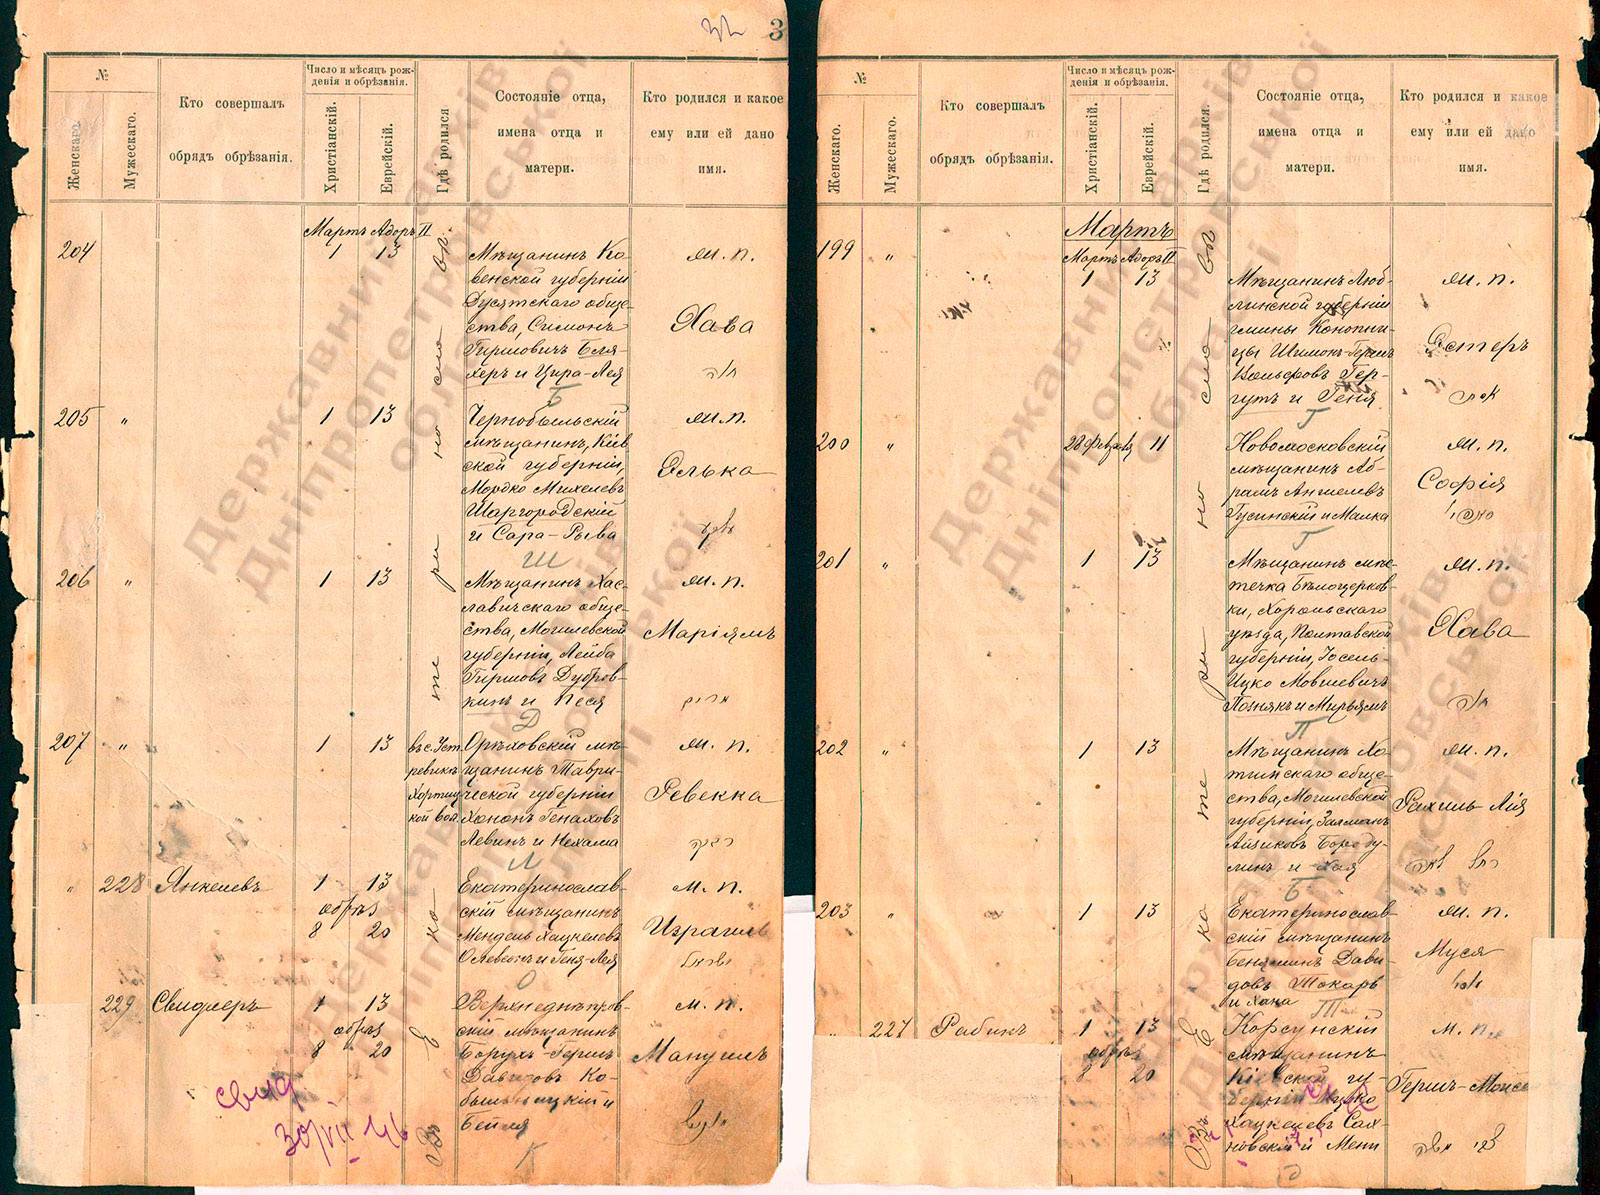 32
3
№
Женскаго.
Мужескаго.
Кто совершалъ
обрядъ обрѣзанія.
Число и мѣсяцъ рож-
денія и обрѣзанія.
Христіанскій.
Еврейскій.
Гдѣ родился
Состояніе отца,
имена отца и
матери.
Кто родился и какое
ему или ей дано
имя.
Мартъ Адоръ II
Въ Екатеринославѣ
204
1
13
Мѣщанинъ Ко-
венской губерніи
Дусятскаго обще-
ства, Симонъ
Гиршовичъ Бля-
херъ и Цира-Лея
Б
м. п.
Хава
חוה
205
"
1
13
Чернобыльскій
мѣщанинъ, Кіев
ской губерніи,
Мордко Михелевъ
Шаргородскій
и Сара-Рыва
Ш
м. п.
Элька
206
"
1
13
Мѣщанинъ Хас-
лавичскаго обще-
ства, Могилевской
губерніи, Лейба
Гиршовъ Дубров-
кинъ и Песя
Д
м. п.
Маріямъ
מרים
207
"
1
13
въ с. Уст.
Хортиц
кой вол.
Орѣховскій мѣ-
щанинъ Таври-
ческой губерніи
Хононъ Генаховъ
Левинъ и Нехама
Л
м. п.
Ревекка
רבקה
"
228
Янкелевъ
1
13
обрѣз
8
20
Екатеринослав-
скій мѣщанинъ
Мендель Хацкелевъ
и Геня-Лея
О
м. п.
Израиль
ישראל
229
Свидлеръ
1
13
обрѣз
8
20
Верхнеднѣпров-
скій мѣщанинъ
Борухъ-Гершъ
Давидовъ Ко-
и
Бейля
К
м. п.
Манушъ
свид
30/VII 46
№
Женскаго.
Мужескаго.
Кто совершалъ
обрядъ обрѣзанія.
Число и мѣсяцъ рож-
денія и обрѣзанія.
Христіанскій.
Еврейскій.
Гдѣ родился.
Состояніе отца,
имена отца и
матери.
Кто родился и какое
ему или ей дано
имя.
Мартъ
Мартъ Адоръ II
Въ Екатеринославѣ
199
"
1
13
Мѣщанинъ Люб-
линской губерніи
гмины Конопни-
цы Шимонъ-Гершъ
Вольфовъ Гер-
гутъ и Геня
Г
м. п.
Эстеръ
אסתר
200
"
28 февраля
11
Новомосковскій
мѣщанинъ Аб-
рамъ Аншелевъ
Гусинскій и Малка
Г
м. п.
Софія
201
"
1
13
Мѣщанинъ мѣс-
течка Бѣлоцерков-
ки, Хорольскаго
уѣзда, Полтавской
губерніи, Іосель-
Ицко Мовшевичъ
Познякъ и Мирьямъ
П
м. п.
Хава
חוה
202
"
1
13
Мѣщанинъ Хо-
тимскаго обще-
ства, Могилевской
губерніи, Залманъ
Айзиковъ Бороду-
линъ и Хая
Б
м. п.
Рахиль Лія
רחל לאה
203
"
1
13
Екатеринослав-
скій мѣщанинъ
Беньяминъ Дави-
довъ Токарь
и Хана
Т
м. п.
Муся
227
Рабинъ
1
13
обрѣз
8
20
Корсунскій
мѣщанинъ
Кіевской гу-
берніи Ицко
Хацкелевъ Сах-
новскій и Мени
С
м. п.
Гершъ-Мойсе
צבי משה
Державний архів
Дніпропетровської
області